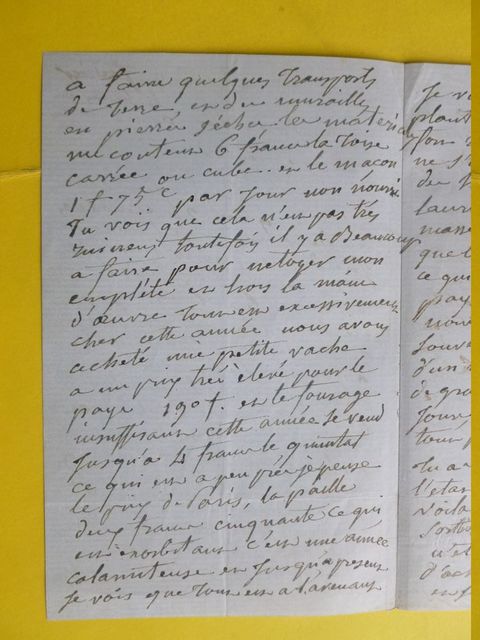 a faire quelques transports
de terre et de murailles
en pierre sèche les matériaux
me coutent 6 francs la toise
carrée ou cube et le maçon
1 f 75 c par jour non nourri
Tu vois que cela n'est pas très
toutefois il y a Beaucoup
a faire pour netoyer mon
et hors la main
d'œuvre tout est excessivement
cher cette année nous avons
acheté une petite vache
a un prix très élevé pour le
pays 190 f. et le fourage
insuffisant cette année se vend
Jusqu'a 4 francs le quintal
ce qui est a peu près je pense
le prix de Paris, la paille
deux francs cinquante ce qui
est exorbitant c'est une année
calamiteuse et Jusqu'a présent
Je vois que tout est a l'avenant
Je
plant
fon
ne s'
de
laur
masse
que l
ce qui
pays
nou
souve
d'un
de gra
Jour
tout p
Tu a
l'etat
voila
d'ac